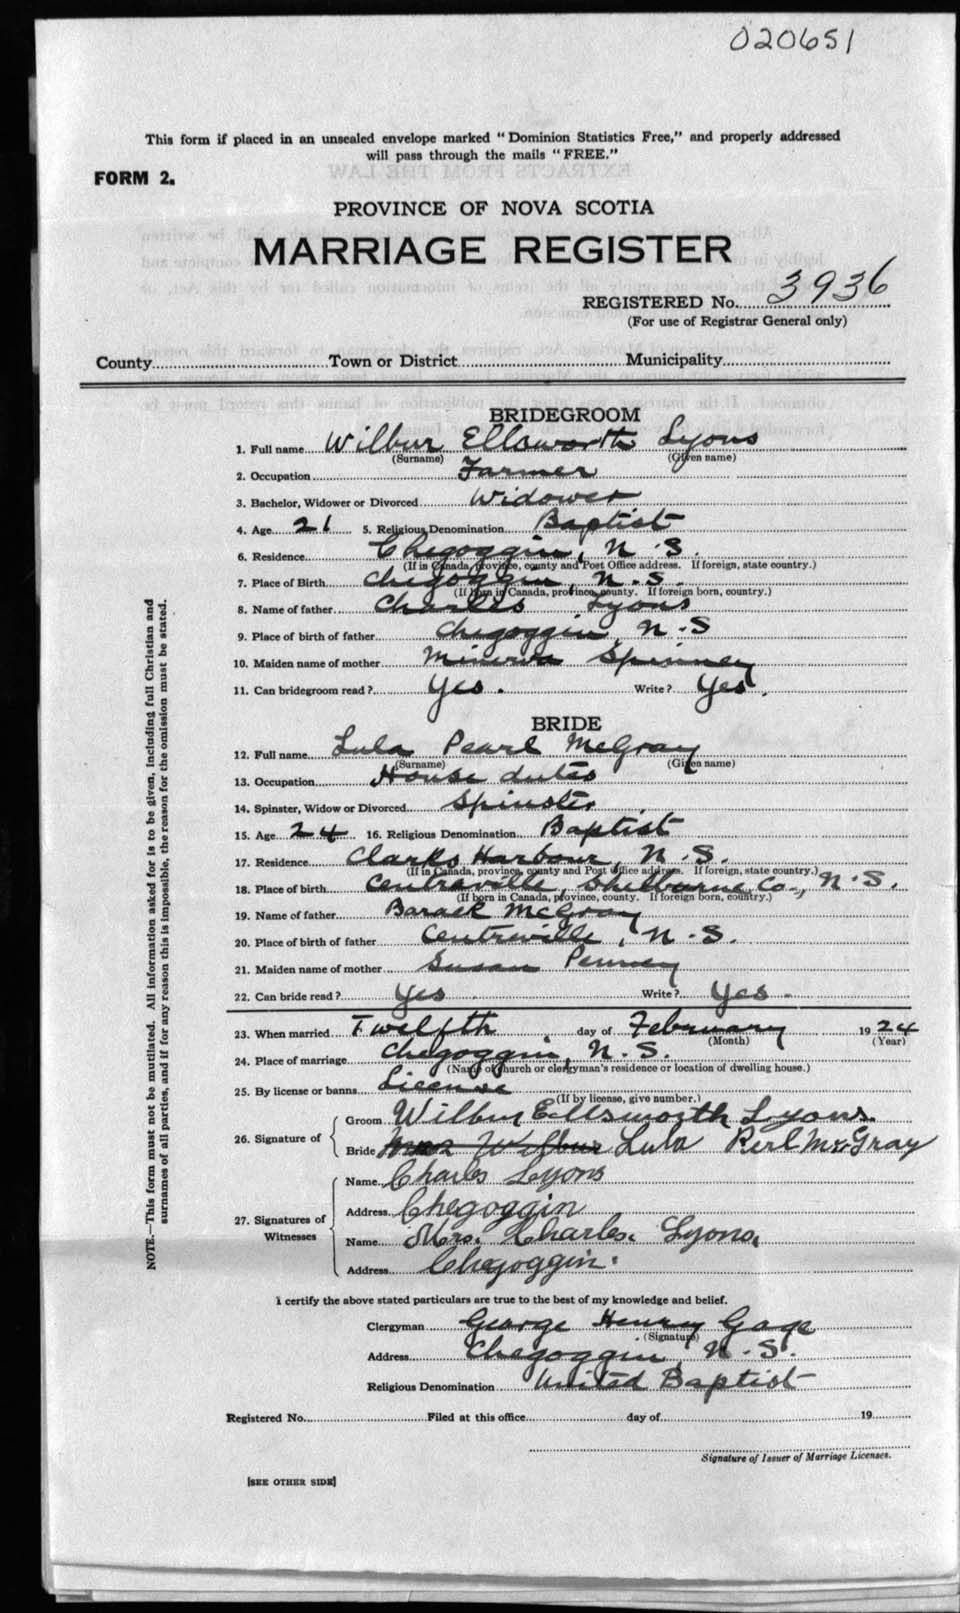 020651
This form if placed in an unsealed envelope marked "Dominion Statistics Free," and properly addressed
will pass through the mails "FREE."
FORM 2.
PROVINCE OF NOVA SCOTIA
MARRIAGE REGISTER
REGISTERED No. 3936
(For use of Registrar General only)
County Town or District Municipality
BRIDEGROOM
1. Full name Wilbur Ellsworth Lyons
(Surname) (Given name)
2. Occupation Farmer
3. Bachelor, Widower or Divorced Widower
4. Age 21 5. Religious Denomination Baptist
6. Residence Chegoggin, N.S.
(If in Canada, province, county and Post Office address. If foreign, state country.)
7. Place of Birth Chegoggin, N.S.
(If born in Canada, province, county. If foreign born, country.)
8. Name of father Charles Lyons
9. Place of birth of father Chegoggin, N.S
10. Maiden name of mother Minerva Spinney
11. Can bridegroom read? Yes. Write? Yes.
BRIDE
12. Full name Lula Pearl McGray
(Surname) (Given name)
13. Occupation House duties
14. Spinster, Widow or Divorced Spinster
15. Age 24 16. Religious Denomination Baptist
17. Residence Clarks Harbour, N.S.
(If in Canada, province, county and Post Office address. If foreign, state country.)
18. Place of birth Centraville, Shelburne Co., N.S.
(If born in Canada, province, county. If foreign born, country.)
19. Name of father Barack McGray
20. Place of birth of father Centreville, N.S.
21. Maiden name of mother Susan Penney
22. Can bride read? Yes Write? Yes
23. When married Twelfth day of February 1924
(Month) (Year)
24. Place of marriage Chegoggin, N.S.
(Name of church or clergyman's residence or location of dwelling house.)
25. By license or banns License
(If by license, give number.)
26. Signature of
Groom Wilbur Ellsworth Lyons
Bride Mrs Wilbur Lula Perl McGray
27. Signatures of Witnesses
Name Charles Lyons
Address Chegoggin
Name Mrs. Charles. Lyons.
Address Chegoggin.
I certify the above stated particulars are true to the best of my knowledge and belief.
Clergyman George Henry Gage
(Signature)
Address Chegoggin, N.S.
Religious Denomination United Baptist
Registered No. Filed at this office day of 19
Signature of Issuer of Marriage Licenses.
[SEE OTHER SIDE]
NOTE.—This form must not be mutilated. All information asked for is to be given, including full Christian and
surnames of all parties, and if for any reason this is impossible, the reason for the omission must be stated.